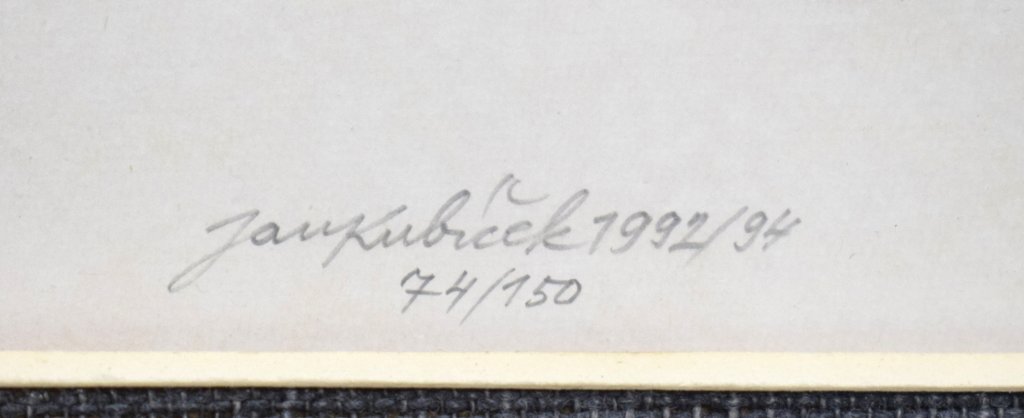 Jan Kubíček 1992/94
74/150